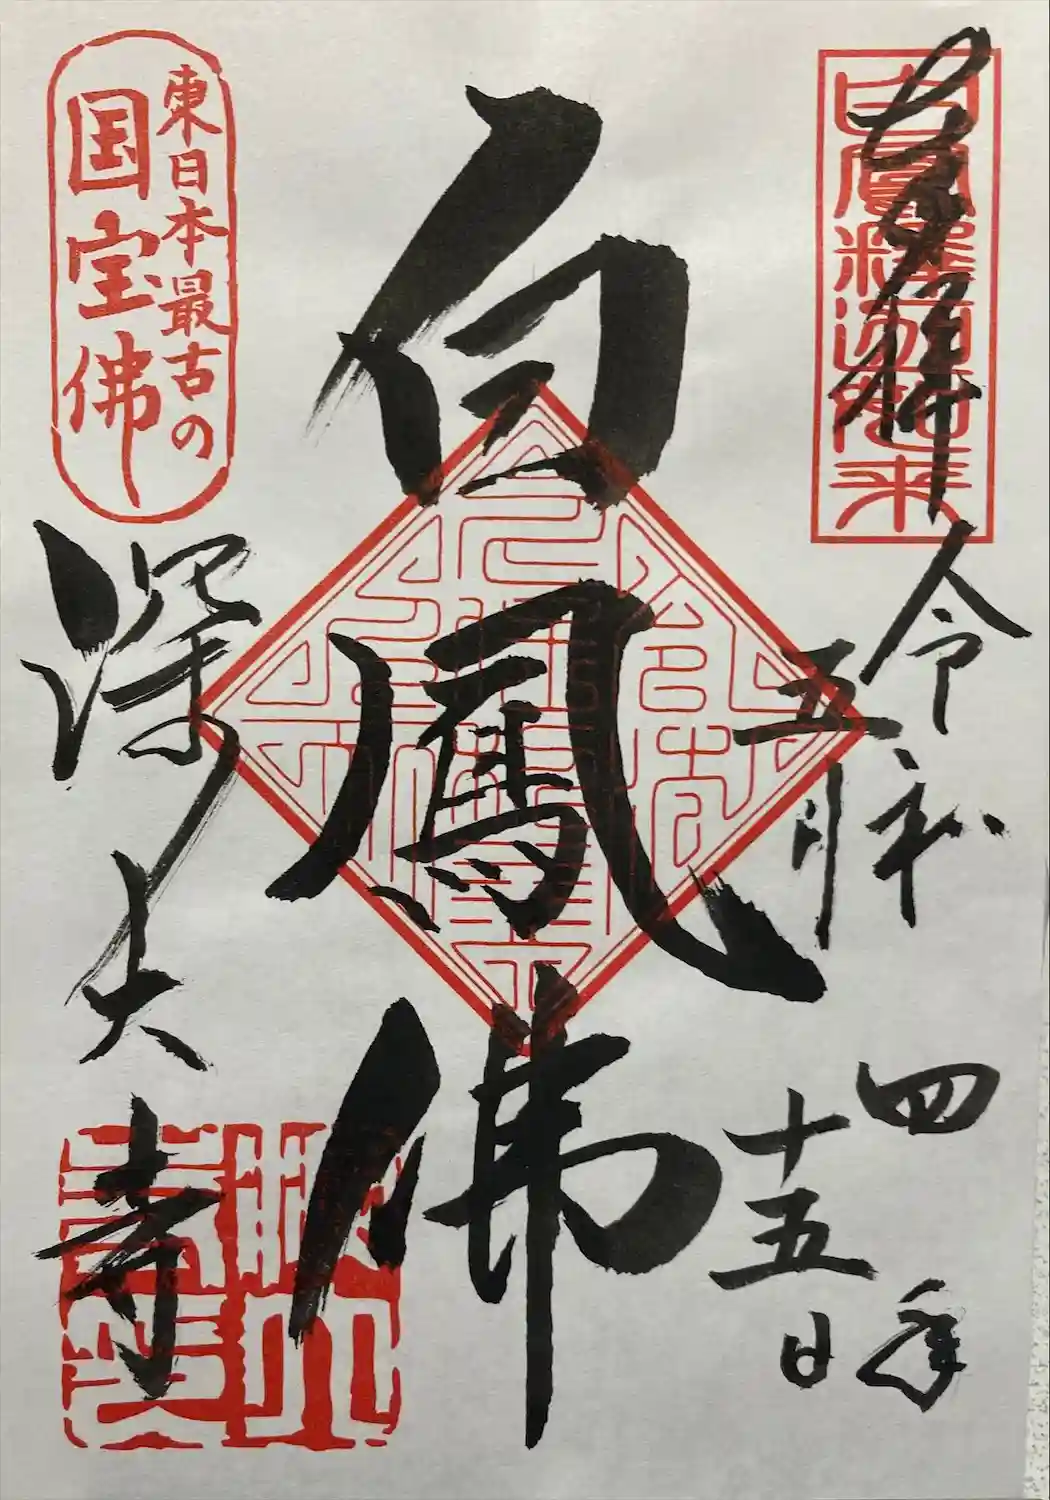 奉拝
白鳳釈迦如来
令和四年
五月十五日
白鳳佛
東日本最古の
国宝佛
深大寺